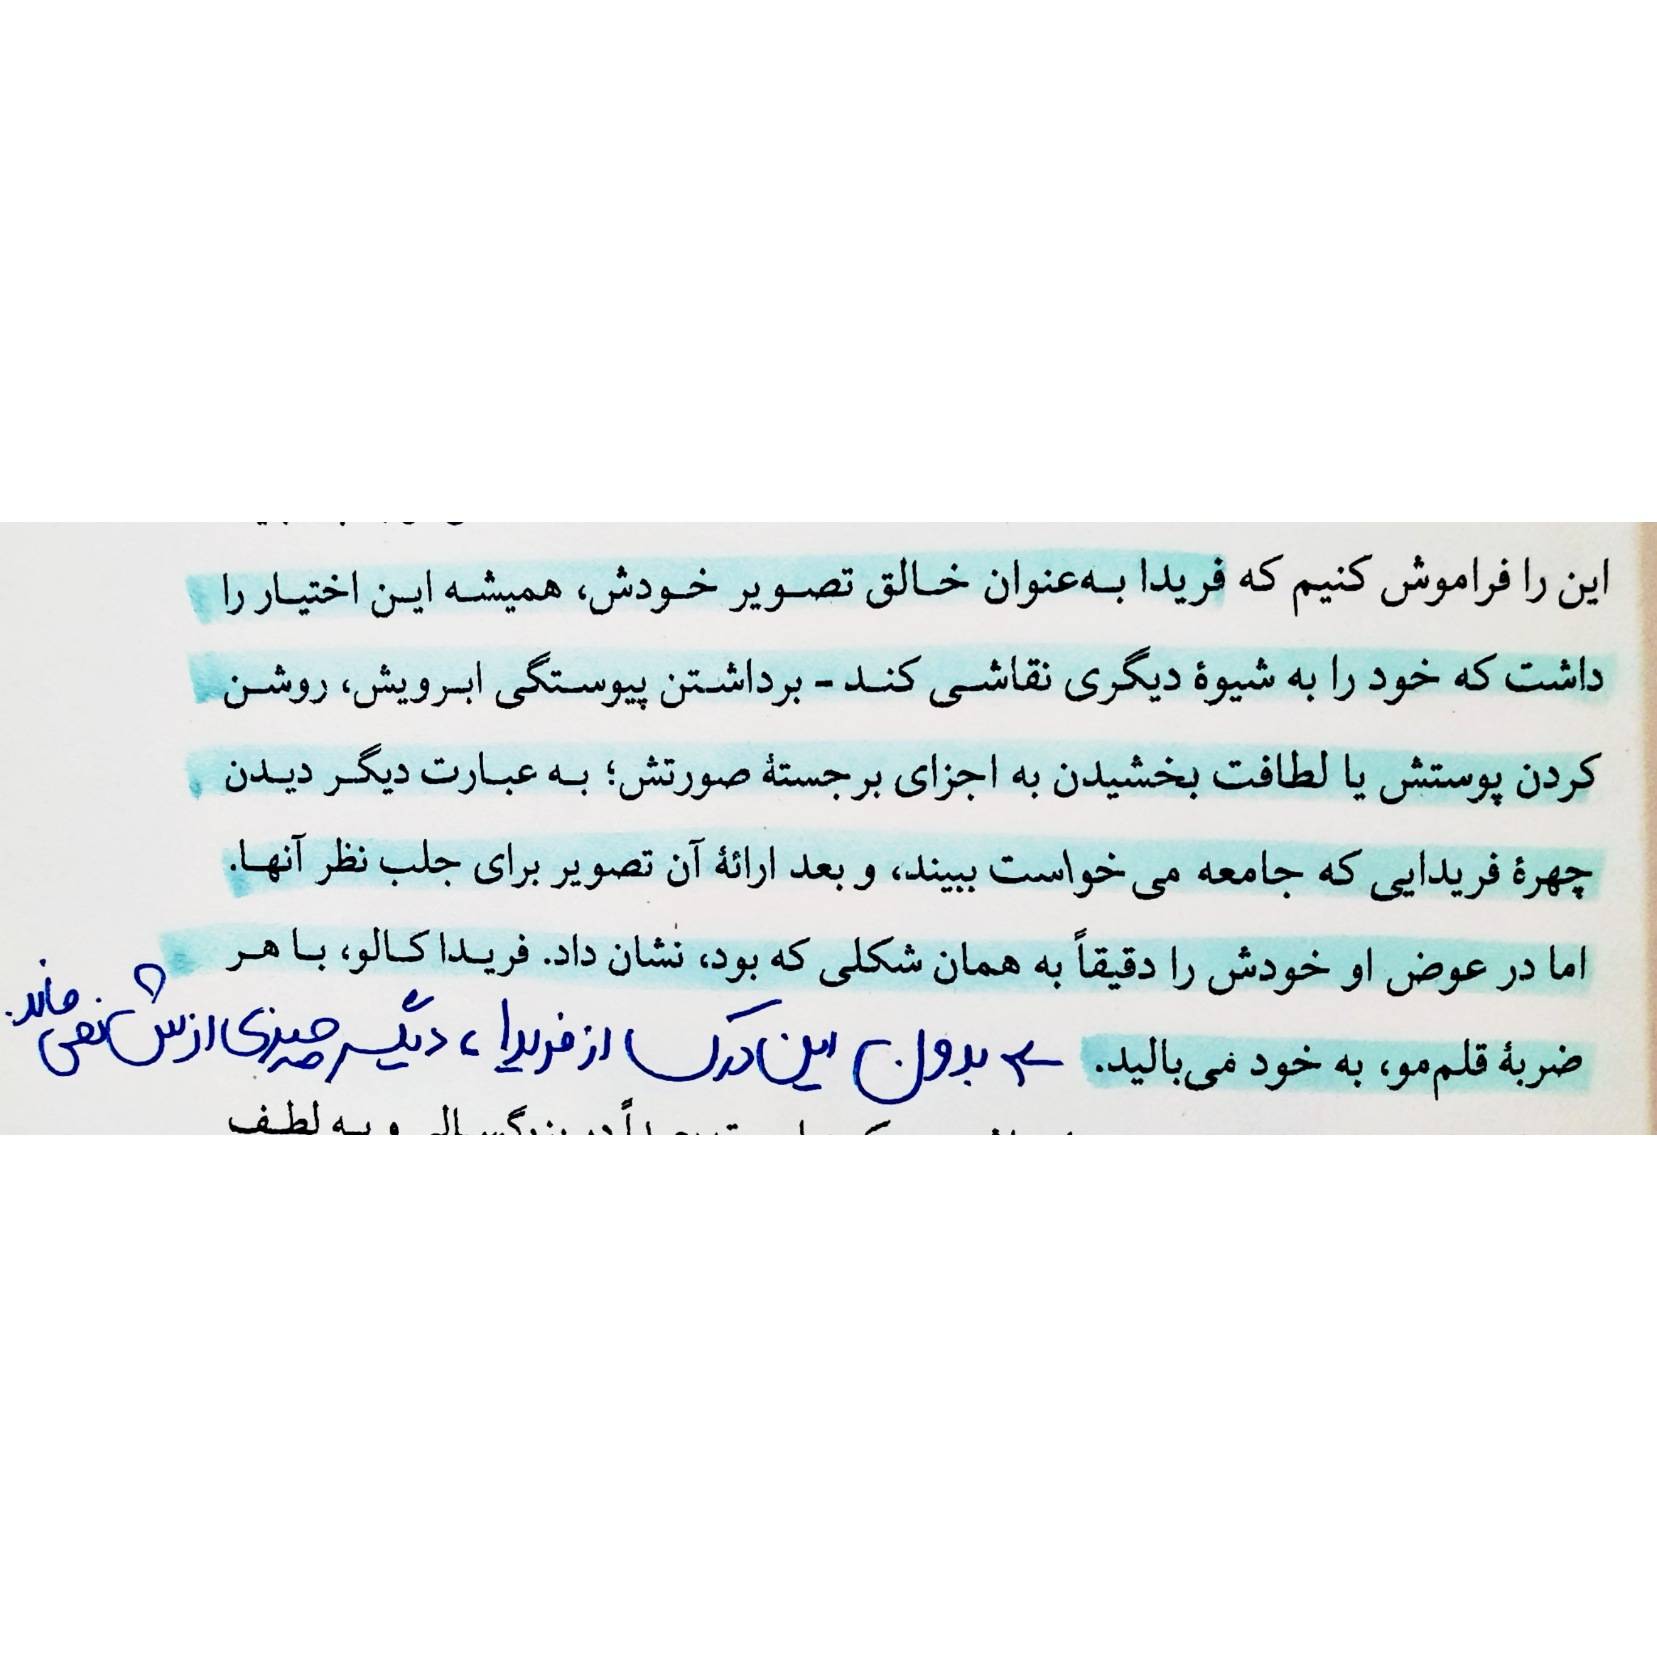 این را فراموش کنیم که فریدا به‌عنوان خالق تصویر خودش، همیشه این اختیار را
داشت که خود را به شیوهٔ دیگری نقاشی کند - برداشتن پیوستگی ابرویش، روشن
کردن پوستش یا لطافت بخشیدن به اجزای برجستهٔ صورتش؛ به عبارت دیگر دیدن
چهرهٔ فریدایی که جامعه می‌خواست ببیند، و بعد ارائهٔ آن تصویر برای جلب نظر آنها.
اما در عوض او خودش را دقیقاً به همان شکلی که بود، نشان داد. فریدا کالو، با هر
ضربهٔ قلم‌مو، به خود می‌بالید. ← بدون این درک از فریدا، دیگر چیزی ازش نمی‌ماند.
بزرگسالی و به لطف